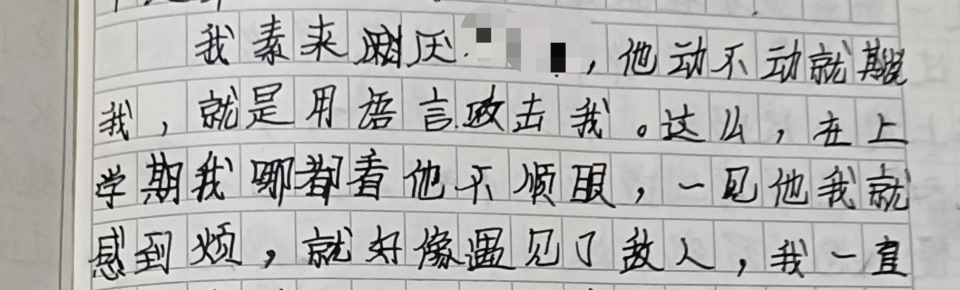 我素来厌,他动不动就
我,就是用语言攻击我。这么,在上
学期我哪都看他不顺眼,一见他我就
感到烦,就好像遇见了敌人,我一直